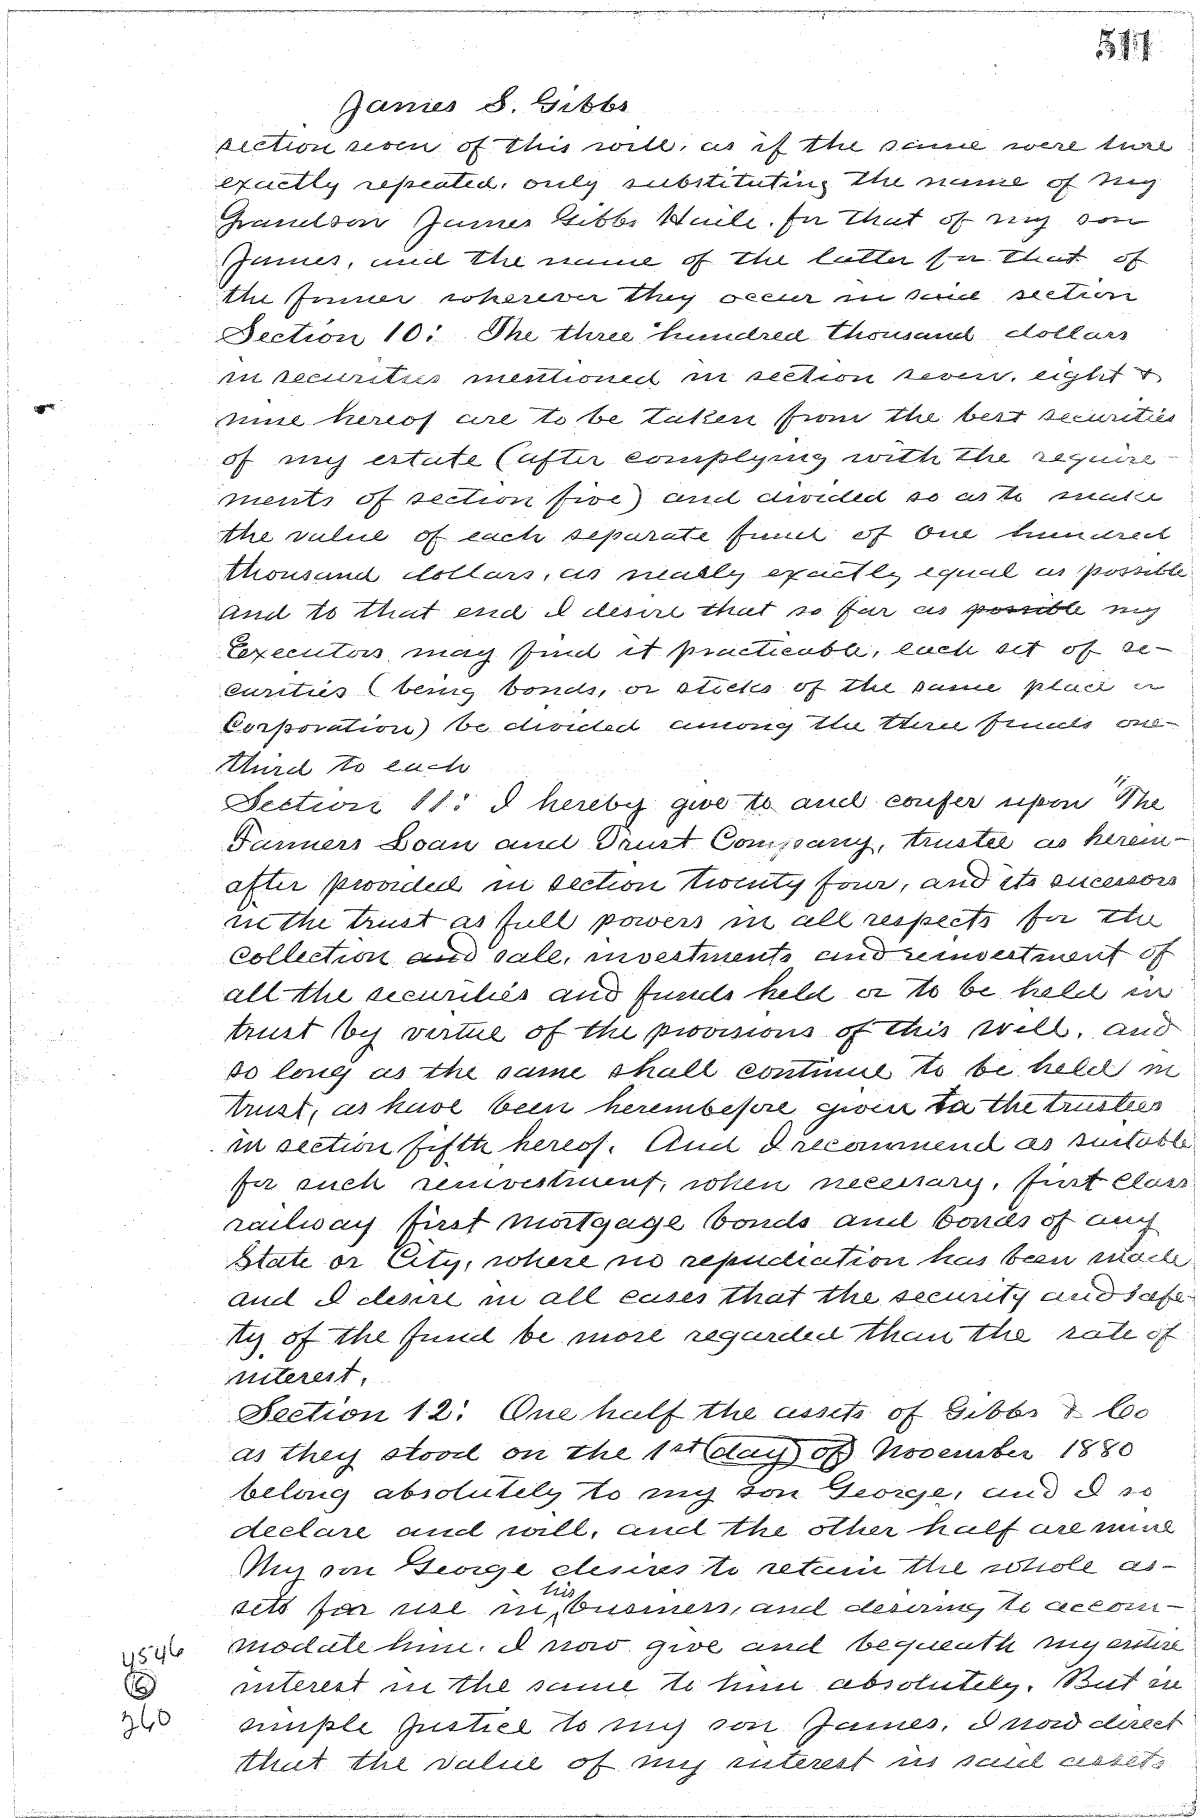 511
James S. Gibbs
section seven of this will, as if the same were here
exactly repeated, only substituting the name of my
Grandson James Gibbs Haile for that of my son
James, and the name of the latter for that of
the former wherever they occur in said section
Section 10: The three hundred thousand dollars
in securities mentioned in section seven, eight &
nine hereof are to be taken from the best securities
of my estate (after complying with the require-
ments of section five) and divided so as to make
the value of each separate fund of One hundred
thousand dollars, as nearly exactly equal as possible
and to that end I desire that so far as possible my
Executors may find it practicable, each set of se-
curities (being bonds, or stocks of the same place or
Corporation) be divided among the three funds one-
third to each
Section 11: I hereby give to and confer upon "The
Farmers Loan and Trust Company, trustee as herein-
after provided in section twenty four, and its sucessors
in the trust as full powers in all respects for the
collection and sale, investments and reinvestment of
all the securities and funds held or to be held in
trust by virtue of the provisions of this will, and
so long as the same shall continue to be held in
trust, as have been hereinbefore given to the trustees
in section fifth hereof. And I recommend as suitable
for such reinvestment, when necessary, first class
railway first mortgage bonds and bonds of any
State or City, where no repudiation has been made
and I desire in all cases that the security and safe-
ty of the fund be more regarded than the rate of
interest.
Section 12: One half the assets of Gibbs & Co
as they stood on the 1st (day) of November 1880
belong absolutely to my son George, and I so
declare and will, and the other half are mine
My son George desires to retain the whole as-
sets for use in his business, and desiring to accom-
modate him. I now give and bequeath my entire
interest in the same to him absolutely. But in
simple justice to my son James, I now direct
that the value of my interest in said assets
4546
6
360